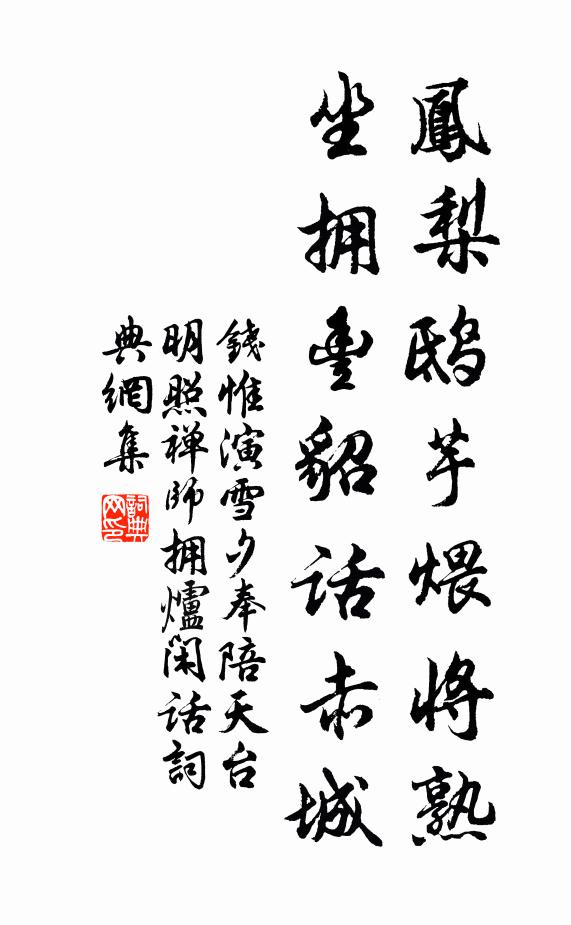 鳳梨鴟芋煨將熟
坐拥豐貂话赤城
錢惟演雪夕奉陪天台
明照禅師拥爐閑话詞
典網集
詞典网印